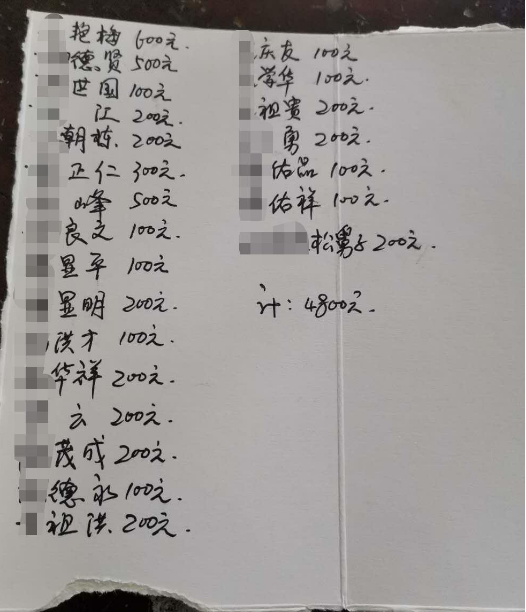 艳梅 600元.
德贤 500元
世国 100元
江 200元.
朝栋 200元
正仁 300元
峰 500元
良文 100元.
显平 100元
显明 200元.
洪才 100元.
华祥 200元.
云 200元.
茂成 200元.
德永 100元.
祖洪 200元.
庆友 100元
荣华 100元.
祖贵 200元.
勇 200元.
佑品 100元.
佑祥 100元.
松舅子 200元.
计: 4800元.